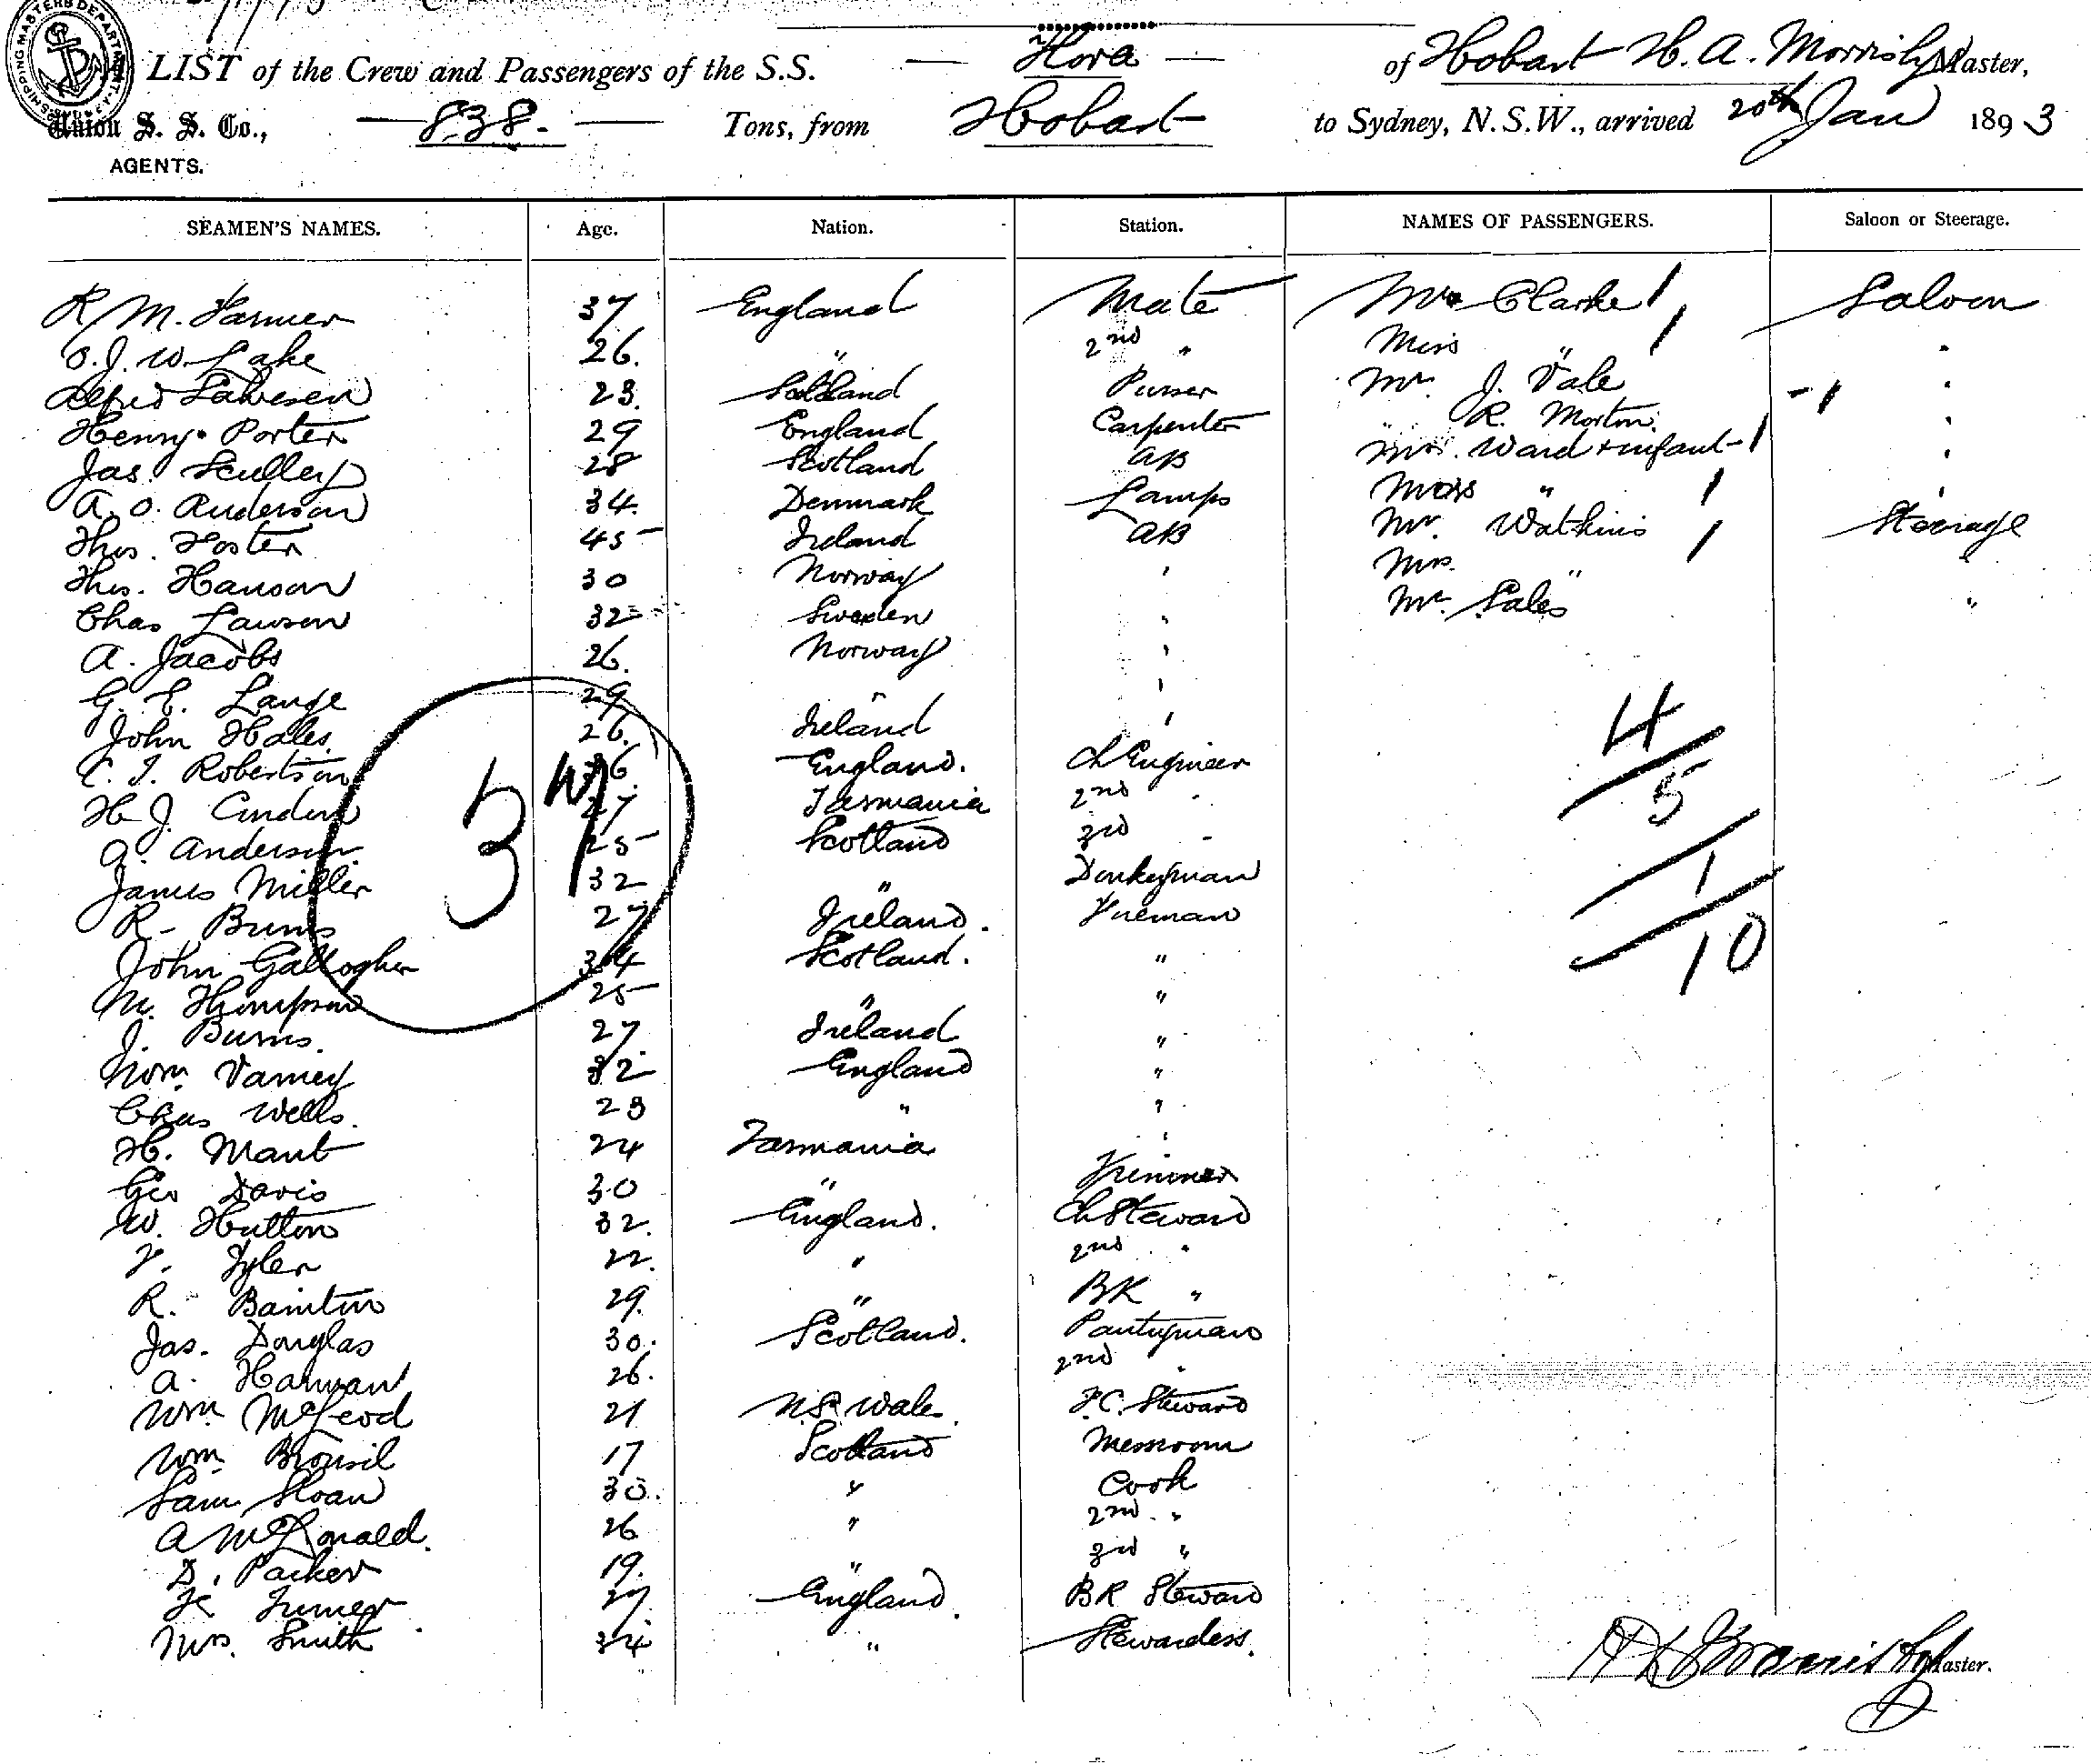 SHIPPING MASTERS DEPARTMENT
LIST of the Crew and Passengers of the S.S. Flora of Hobart H. A. Morrisby Master,
Union S. S. Co., 838 Tons, from Hobart to Sydney, N.S.W., arrived 20th Jan 1893
AGENTS.
SEAMEN'S NAMES. Age. Nation. Station. NAMES OF PASSENGERS. Saloon or Steerage.
R. M. Farmer 37 England Mate Mrs Clarke 1 Saloon
O. J. W. Lake 26. " 2nd " Miss " 1 "
Alfred 23. Scotland Purser Mr. J. Vale - 1 "
Henry Porter 29 England Carpenter R. Morton. "
Jas. Sculley 28 Scotland AB Mrs. Ward + infant - 1 "
A. O. Anderson 34. Denmark Lamps Miss " 1 "
Thos. Foster 45 Ireland AB Mr. Watkins 1 Steerage
Thos. Hanson 30 Norway " Mrs. " "
Chas Lawson 32 Sweden " Mr. Sales "
A. Jacobs 26. Norway "
G. E. Lange 29 " "
John Hales 26. Ireland "
C. J. Robertson 36. England. Ch Engineer
H. J. 27 Tasmania 2nd "
A. Anderson 25 Scotland 3rd "
James Miller 32 " Donkeyman
R. Burns 27 Ireland. Fireman
John Gallogher 34 Scotland. "
M. Thompson 25 " "
J. Burns. 27 Ireland "
Wm. Varney 32 England "
Chas Wells. 23 " "
H. Mant 24 Tasmania "
Geo Davis 30 " Trimmer
W. Hutton 32. England. Ch Steward
F. Tyler 22. " 2nd "
R. Bainton 29. " BK "
Jas. Douglas 30. Scotland. Pantryman
A. Harman 26. 2nd "
Wm McLeod 21 N.S. Wales F.C. Steward
Wm. 17 Scotland Messroom
Sam Sloan 30. " Cook
A McDonald. 26 " 2nd "
D. Parker 19. " 3rd "
Turner 27. England. BK Steward
Mrs. Smith 34 " Stewardess.
37
4
5
1
10
H A Morrisby Master.